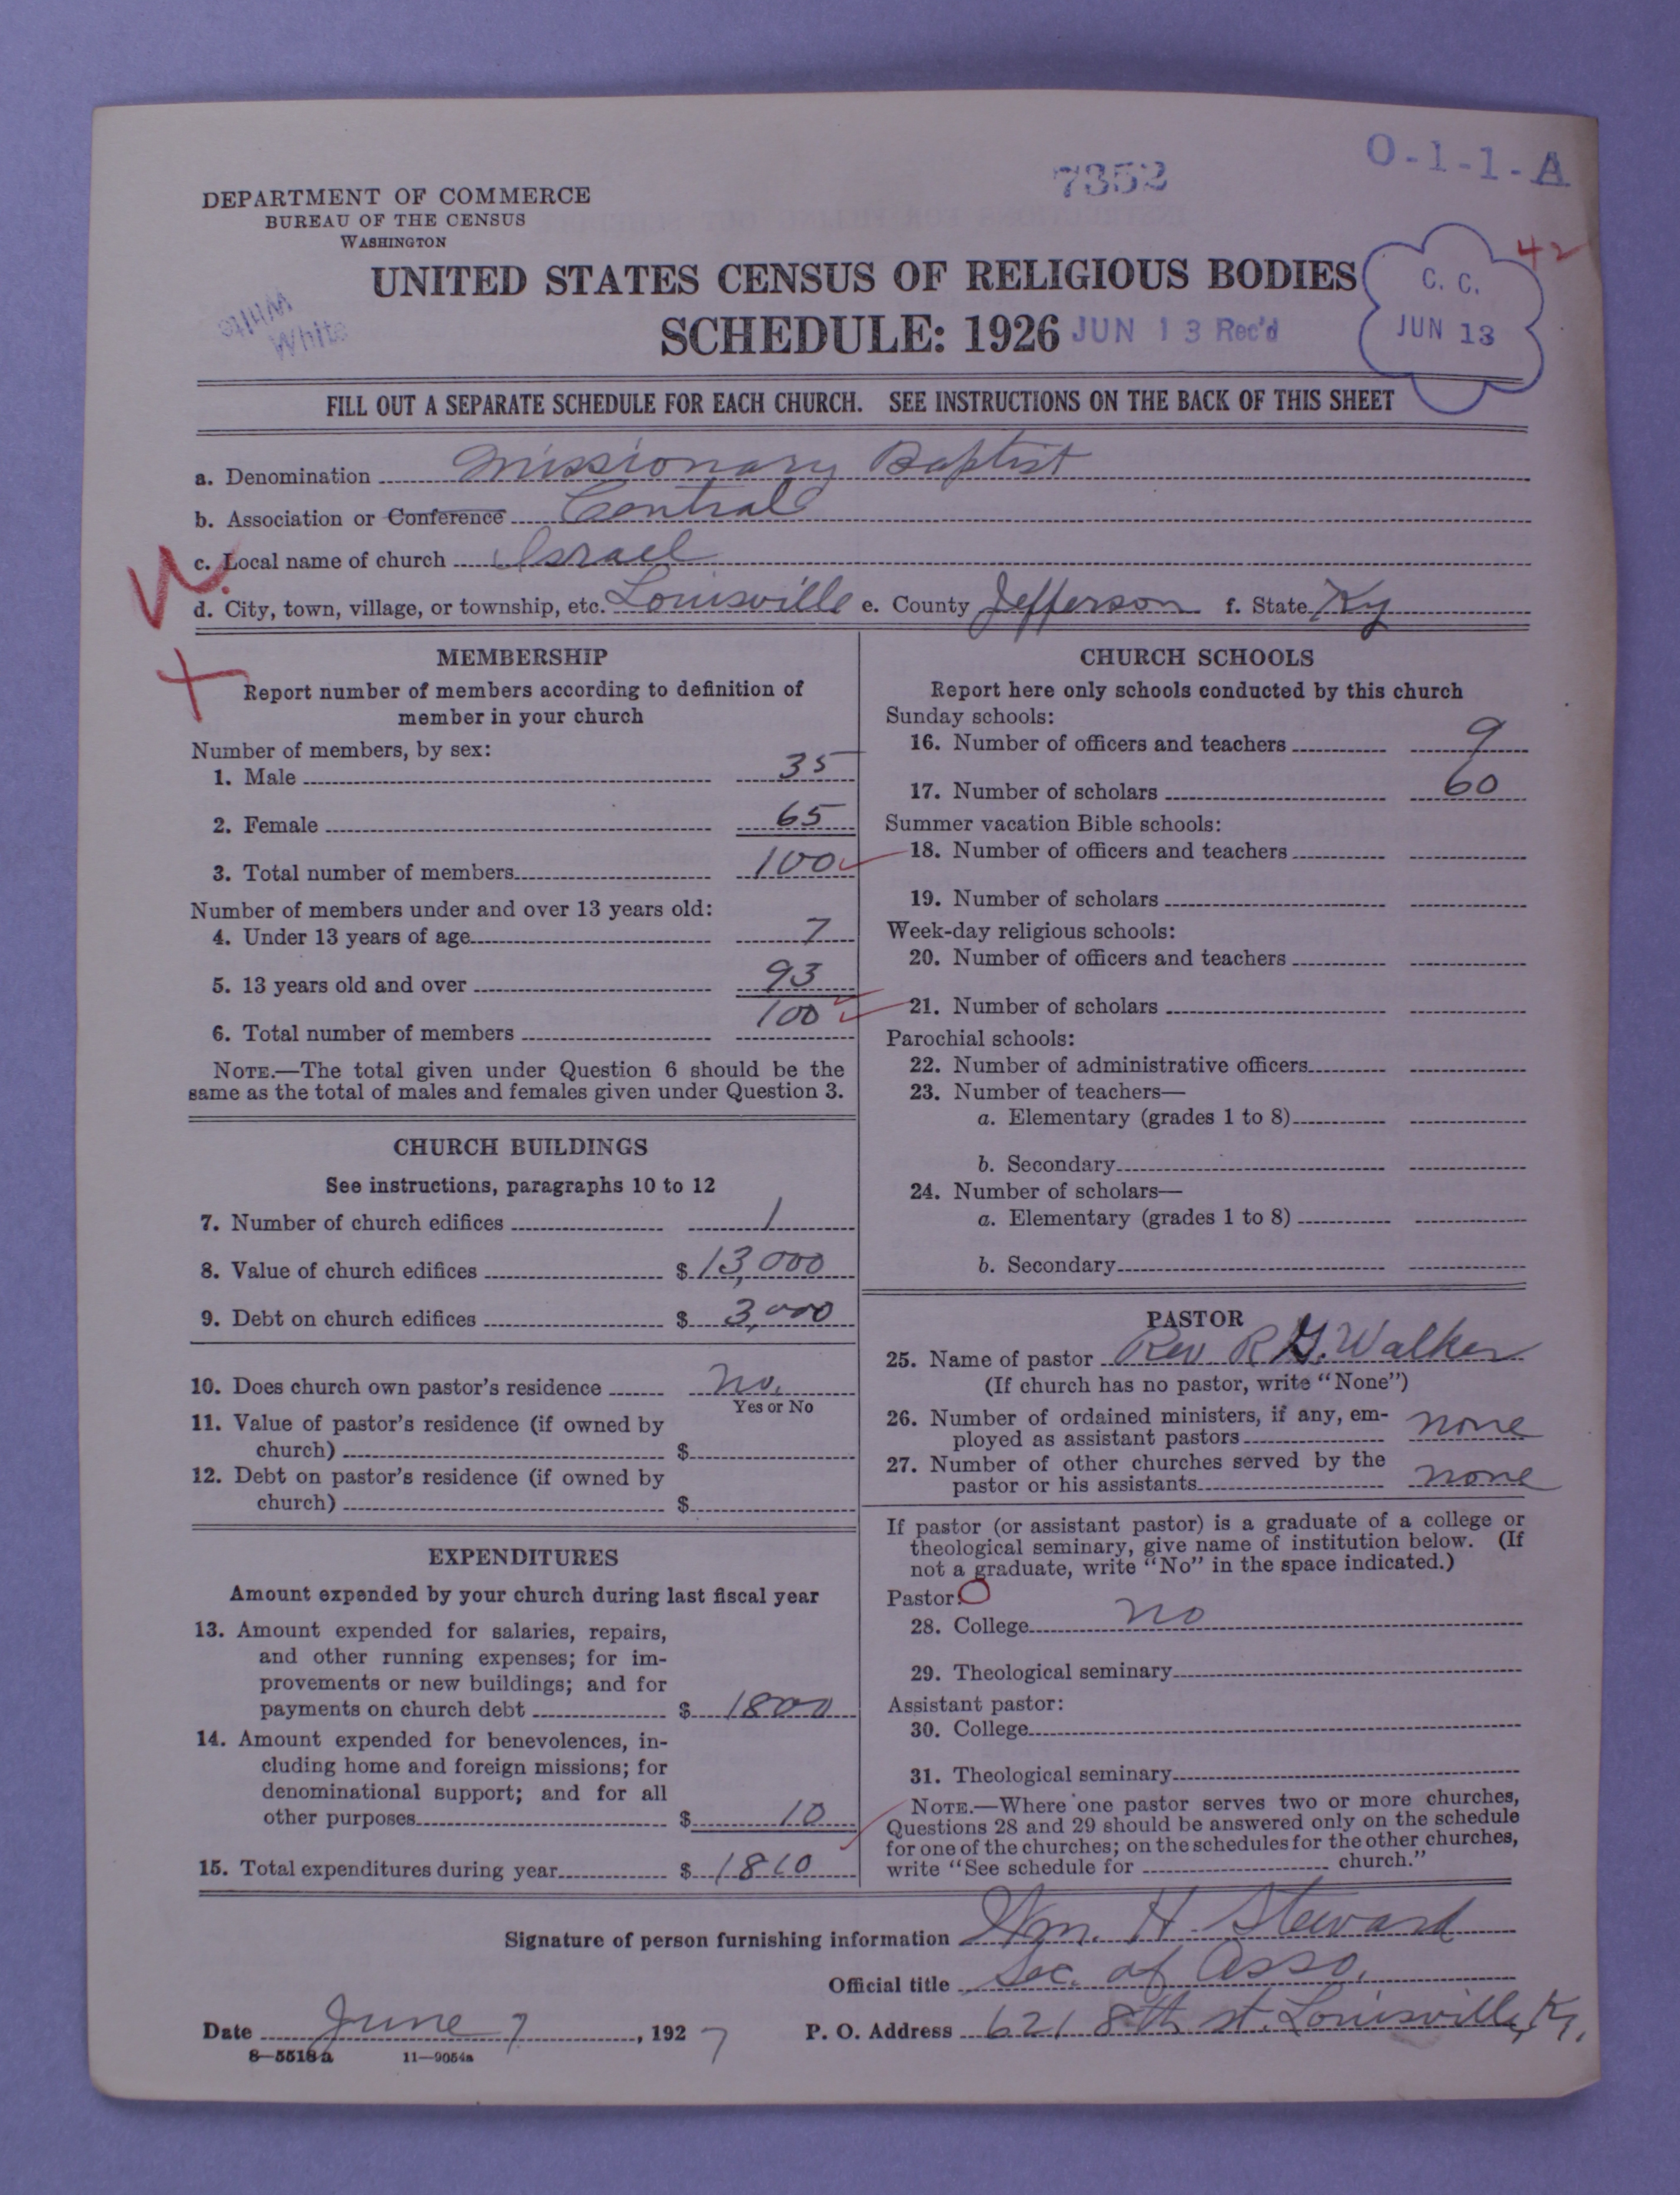 O-1-1-A
7352
DEPARTMENT OF COMMERCE
BUREAU OF THE CENSUS
WASHINGTON
42
UNITED STATES CENSUS OF RELIGIOUS BODIES
C. C.
White
White
SCHEDULE: 1926 JUN 13 Rec'd
JUN 13
FILL OUT A SEPARATE SCHEDULE FOR EACH CHURCH. SEE INSTRUCTIONS ON THE BACK OF THIS SHEET
a. Denomination Missionary Baptist
b. Association or Conference Central
c. Local name of church Israel
d. City, town, village, or township, etc. Louisville e. County Jefferson f. State Ky
MEMBERSHIP
Report number of members according to definition of
member in your church
Number of members, by sex:
1. Male 35
2. Female 65
3. Total number of members 100
Number of members under and over 13 years old:
4. Under 13 years of age 7
5. 13 years old and over 93
6. Total number of members 100
NOTE.—The total given under Question 6 should be the
same as the total of males and females given under Question 3.
CHURCH BUILDINGS
See instructions, paragraphs 10 to 12
7. Number of church edifices 1
8. Value of church edifices $ 13,000
9. Debt on church edifices $ 3,000
10. Does church own pastor's residence no.
Yes or No
11. Value of pastor's residence (if owned by
church) $
12. Debt on pastor's residence (if owned by
church) $
EXPENDITURES
Amount expended by your church during last fiscal year
13. Amount expended for salaries, repairs,
and other running expenses; for im-
provements or new buildings; and for
payments on church debt $ 1800
14. Amount expended for benevolences, in-
cluding home and foreign missions; for
denominational support; and for all
other purposes $ 10
15. Total expenditures during year $ 1810
CHURCH SCHOOLS
Report here only schools conducted by this church
Sunday schools:
16. Number of officers and teachers 9
17. Number of scholars 60
Summer vacation Bible schools:
18. Number of officers and teachers
19. Number of scholars
Week-day religious schools:
20. Number of officers and teachers
21. Number of scholars
Parochial schools:
22. Number of administrative officers
23. Number of teachers—
a. Elementary (grades 1 to 8)
b. Secondary
24. Number of scholars—
a. Elementary (grades 1 to 8)
b. Secondary
PASTOR
25. Name of pastor Rev R G. Walker
(If church has no pastor, write "None")
26. Number of ordained ministers, if any, em-
ployed as assistant pastors none
27. Number of other churches served by the
pastor or his assistants none
If pastor (or assistant pastor) is a graduate of a college or
theological seminary, give name of institution below. (If
not a graduate, write "No" in the space indicated.)
Pastor:
28. College no
29. Theological seminary
Assistant pastor:
30. College
31. Theological seminary
NOTE.—Where one pastor serves two or more churches,
Questions 28 and 29 should be answered only on the schedule
for one of the churches; on the schedules for the other churches,
write "See schedule for church."
Signature of person furnishing information Wm. H. Steward
Official title Sec. of Asso.
Date June 7, 1927 P. O. Address 621 8th st. Louisville, Ky.
8—5518a 11—9054a